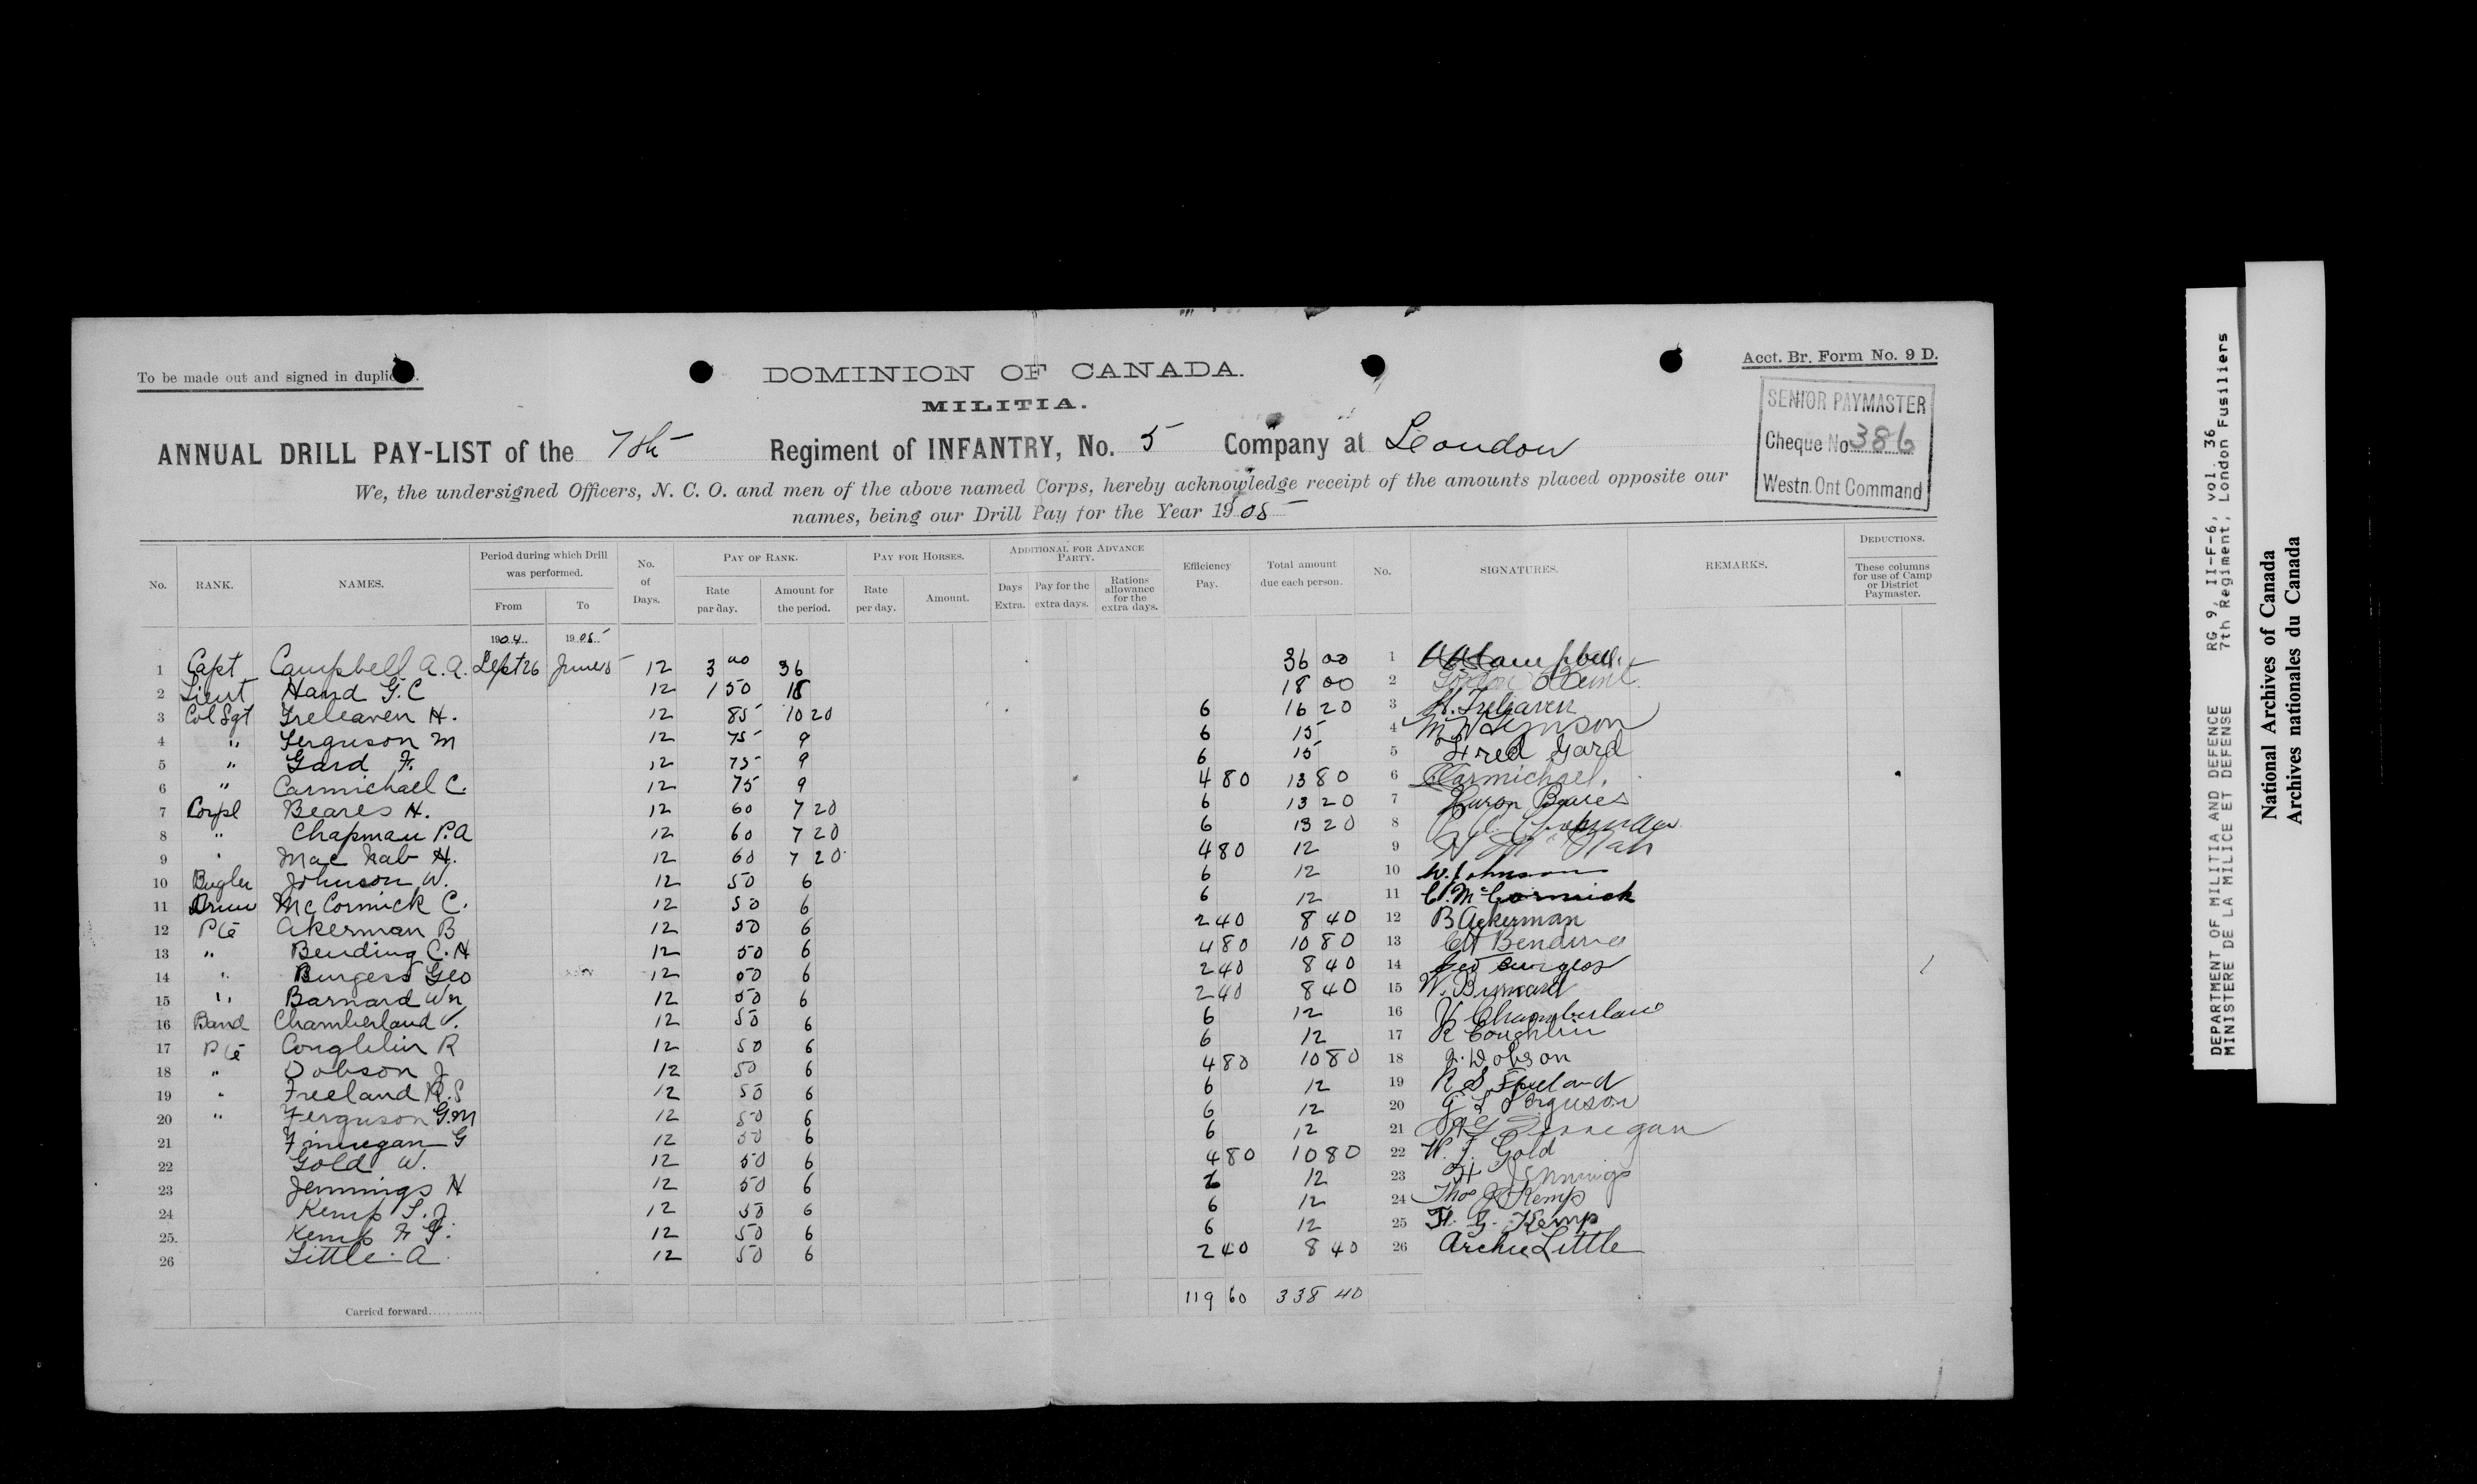 To be made out and signed in duplic .
Acct. Br. Form No. 9 D.
DOMINION OF CANADA.
MILITIA.
SENIOR PAYMASTER
Cheque No 386
Westn. Ont Command
ANNUAL DRILL PAY-LIST of the 7th Regiment of INFANTRY, No. 5 Company at London
We, the undersigned Officers, N. C. O. and men of the above named Corps, hereby acknowledge receipt of the amounts placed opposite our
names, being our Drill Pay for the Year 1905
No. RANK. NAMES. Period during which Drill was performed. From To No. of Days. PAY OF RANK. Rate par day. Amount for the period. PAY FOR HORSES. Rate per day. Amount. ADDITIONAL FOR ADVANCE PARTY. Days Extra. Pay for the extra days. Rations allowance for the extra days. Efficiency Pay. Total amount due each person. No. SIGNATURES. REMARKS. DEDUCTIONS. These columns for use of Camp or District Paymaster.
1904 1905
1 Capt Campbell A.A. Sept 26 June 5 12 3 00 36 36 00 1 AA Campbell
2 Lieut Hand G.C 12 1 50 18 18 00 2
3 Col Sgt Treleaven H. 12 85 10 20 6 16 20 3 H. Treleaven
4 " Ferguson M 12 75 9 6 15 4
5 " Gard F. 12 75 9 6 15 5 Fred Gard
6 " Carmichael C. 12 75 9 4 80 13 80 6 C Carmichael.
7 Corpl Beares H. 12 60 7 20 6 13 20 7 Huron Beares
8 " Chapman P.A 12 60 7 20 6 13 20 8 P. A. Chapman
9 " Mac Nab H. 12 60 7 20 4 80 12 9 H Mc Nab
10 Bugler Johnson W. 12 50 6 6 12 10 W. Johnson
11 Drum McCormick C. 12 50 6 6 12 11 C. McCormick
12 Pte Akerman B 12 50 6 2 40 8 40 12 B Ackerman
13 " Bending C.H 12 50 6 4 80 10 80 13 CH Bending
14 " Burgess Geo 12 50 6 2 40 8 40 14 Geo Burgess
15 " Barnard Wm 12 50 6 2 40 8 40 15 W. Barnard
16 Band Chamberland V. 12 50 6 6 12 16 V Chamberland
17 Pte Coughlin R 12 50 6 6 12 17 R Coughlin
18 " Dobson J 12 50 6 4 80 10 80 18 J. Dobson
19 " Freeland R.S 12 50 6 6 12 19 R S Freeland
20 " Ferguson G.M 12 50 6 6 12 20 G Ferguson
21 Finnegan G 12 50 6 6 12 21 Finnegan
22 Gold W. 12 50 6 4 80 10 80 22 W. J. Gold
23 Jennings H 12 50 6 6 12 23 H Jennings
24 Kemp T. J 12 50 6 6 12 24 Thos J Kemp
25. Kemp F G. 12 50 6 6 12 25 F. G. Kemp
26 Little A 12 50 6 2 40 8 40 26 Archie Little
Carried forward........... 119 60 338 40
DEPARTMENT OF MILITIA AND DEFENCE RG 9, II-F-6, vol. 36
MINISTERE DE LA MILICE ET DEFENSE 7th Regiment, London Fusiliers
National Archives of Canada
Archives nationales du Canada